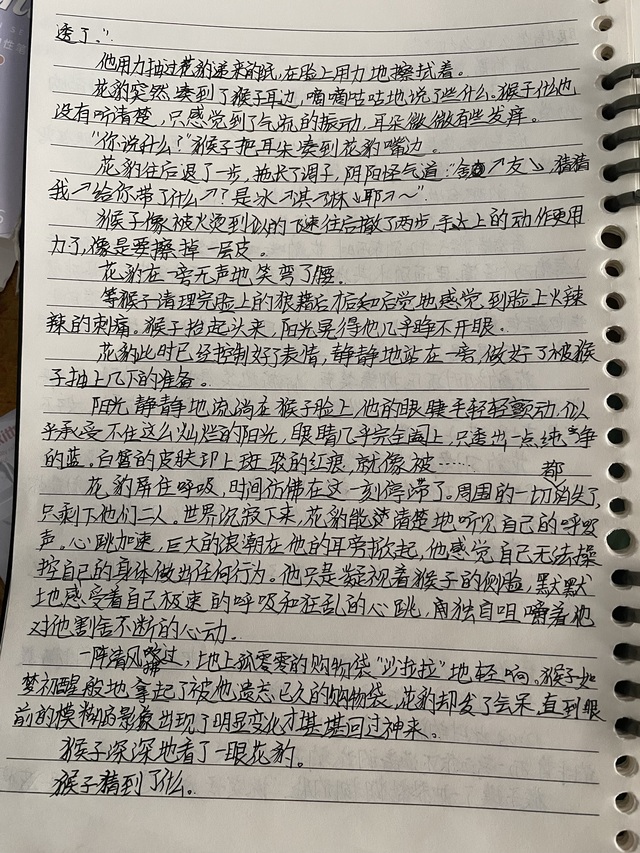 透了。"
他用力抽过花豹递来的纸，在脸上用力地擦拭着。
花豹突然凑到了猴子耳边，嘀嘀咕咕地说了些什么。猴子什么也
没有听清楚，只感觉到了气流的振动，耳朵微微有些发痒。
"你说什么？"猴子把耳朵凑到花豹嘴边。
花豹往后退了一步，拖长了调子，阴阳怪气道："↗友↘，猜猜
我↗给你带了什么↗？是冰↗淇↗淋↘耶↗～"
猴子像被火烫到似的飞速往后撤了两步，手上的动作更用
力了，像是要擦掉一层皮。
花豹在一旁无声地笑弯了腰。
等猴子清理完脸上的狼藉后才后知后觉地感觉到脸上火辣
辣的刺痛。猴子抬起头来，阳光晃得他几乎睁不开眼。
花豹此时已经控制好了表情，静静地站在一旁，做好了被猴
子抽上几下的准备。
阳光静静地流淌在猴子脸上，他的眼睫毛轻轻颤动，似
乎承受不住这么灿烂的阳光，眼睛几乎完全阖上，只透出一点纯净
的蓝。白皙的皮肤印上斑驳的红痕，就像被……
花豹屏住呼吸，时间仿佛在这一刻停滞了。周围的一切都消失了，
只剩下他们二人。世界沉寂下来，花豹能清楚地听见自己的呼吸
声。心跳加速，巨大的浪潮在他的耳旁掀起，他感觉自己无法操
控自己的身体做出任何行为。他只是凝视着猴子的侧脸，默默
地感受着自己极速的呼吸和狂乱的心跳，再独自咀嚼着他
对他割舍不断的心动。
一阵清风掠过，地上孤零零的购物袋"沙拉拉"地轻响。猴子如
梦初醒般地拿起了被他遗忘已久的购物袋，花豹却发了会呆，直到眼
前的模糊的影象出现了明显变化才堪堪回过神来。
猴子深深地看了一眼花豹。
猴子猜到了什么。